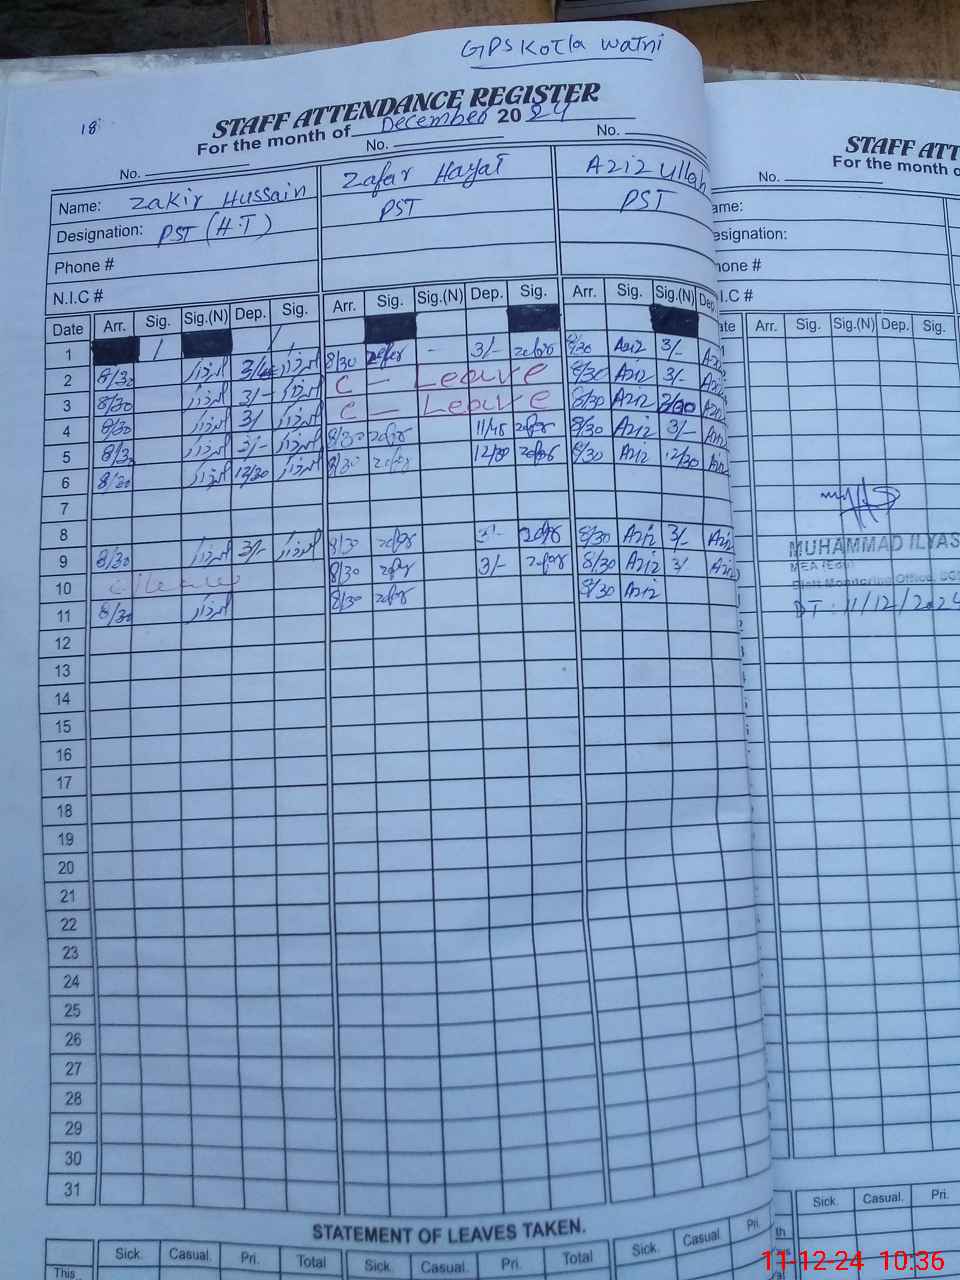 GPS Kotla Watni
18
STAFF ATTENDANCE REGISTER
For the month of December 2024
No. No. No.
Name: Zakir Hussain Zafar Hayat Aziz Ullah
Designation: PST (H.T) PST PST
Phone #
N.I.C #
Date Arr. Sig. Sig.(N) Dep. Sig. Arr. Sig. Sig.(N) Dep. Sig. Arr. Sig. Sig.(N) Dep
1 8/30 zafar - 3/- zafar 8/30 Aziz 3/- Aziz
2 8/30 C - Leave 8/30 Aziz 3/- Aziz
3 8/30 3/- C - Leave 8/30 Aziz Aziz
4 8/30 3/ 8/30 zafar 11/45 zafar 8/30 Aziz 3/- Aziz
5 8/30 3/- 8/30 zafar 12/30 zafar 8/30 Aziz 12/30 Aziz
6 8/30 12/30
7
8 8/30 zafar 3/- zafar 8/30 Aziz 3/- Aziz
9 8/30 3/- 8/30 zafar 3/- zafar 8/30 Aziz 3/ Aziz
10 C/Leave 8/30 zafar 8/30 Aziz
11 8/30
12
13
14
15
16
17
18
19
20
21
22
23
24
25
26
27
28
29
30
31
STATEMENT OF LEAVES TAKEN.
Sick. Casual. Pri. Total Sick. Casual. Pri. Total Sick. Casual. Pri.
This
STAFF ATT
For the month o
No.
ame:
esignation:
hone #
I.C #
ate Arr. Sig. Sig.(N) Dep. Sig.
MUHAMMAD ILYAS
MEA (Edu)
Distt Monitoring Office,
DT: 11/12/2024
Sick. Casual. Pri.
11-12-24 10:36